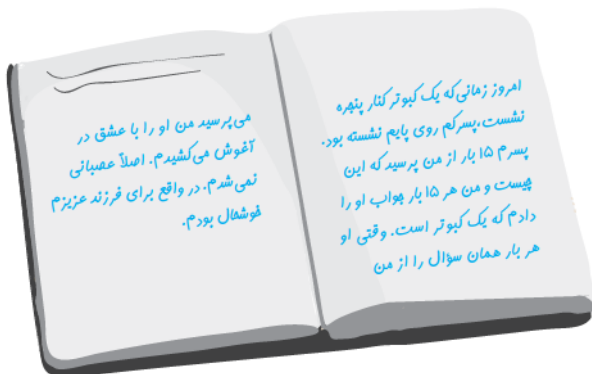 امروز زمانی‌که یک کبوتر کنار پنجره
نشست، پسرکم روی پایم نشسته بود.
پسرم ۱۵ بار از من پرسید که این
چیست و من هر ۱۵ بار جواب او را
دادم که یک کبوتر است. وقتی او
هر بار همان سؤال را از من
می‌پرسید من او را با عشق در
آغوش می‌کشیدم. اصلاً عصبانی
نمی‌شدم. در واقع برای فرزند عزیزم
خوشحال بودم.